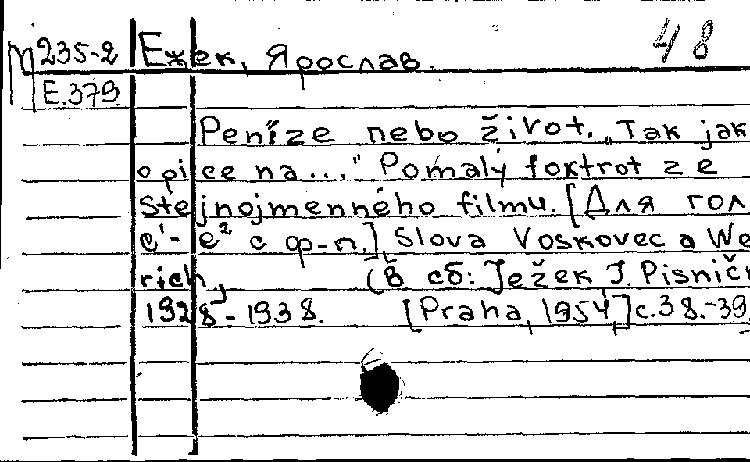 48
М 235-2 Ежек, Ярослав.
Е.379
Peníze nebo život. „Tak jak
opice na..." Pomalý foxtrot ze
stejnojmenného filmu. [Для гол
c¹- e² с ф-п.] Slova Voskovec a We
rich, (В сб: Ježek J. Pisničk
1928-1938. [Praha, 1954,] с.38.-39